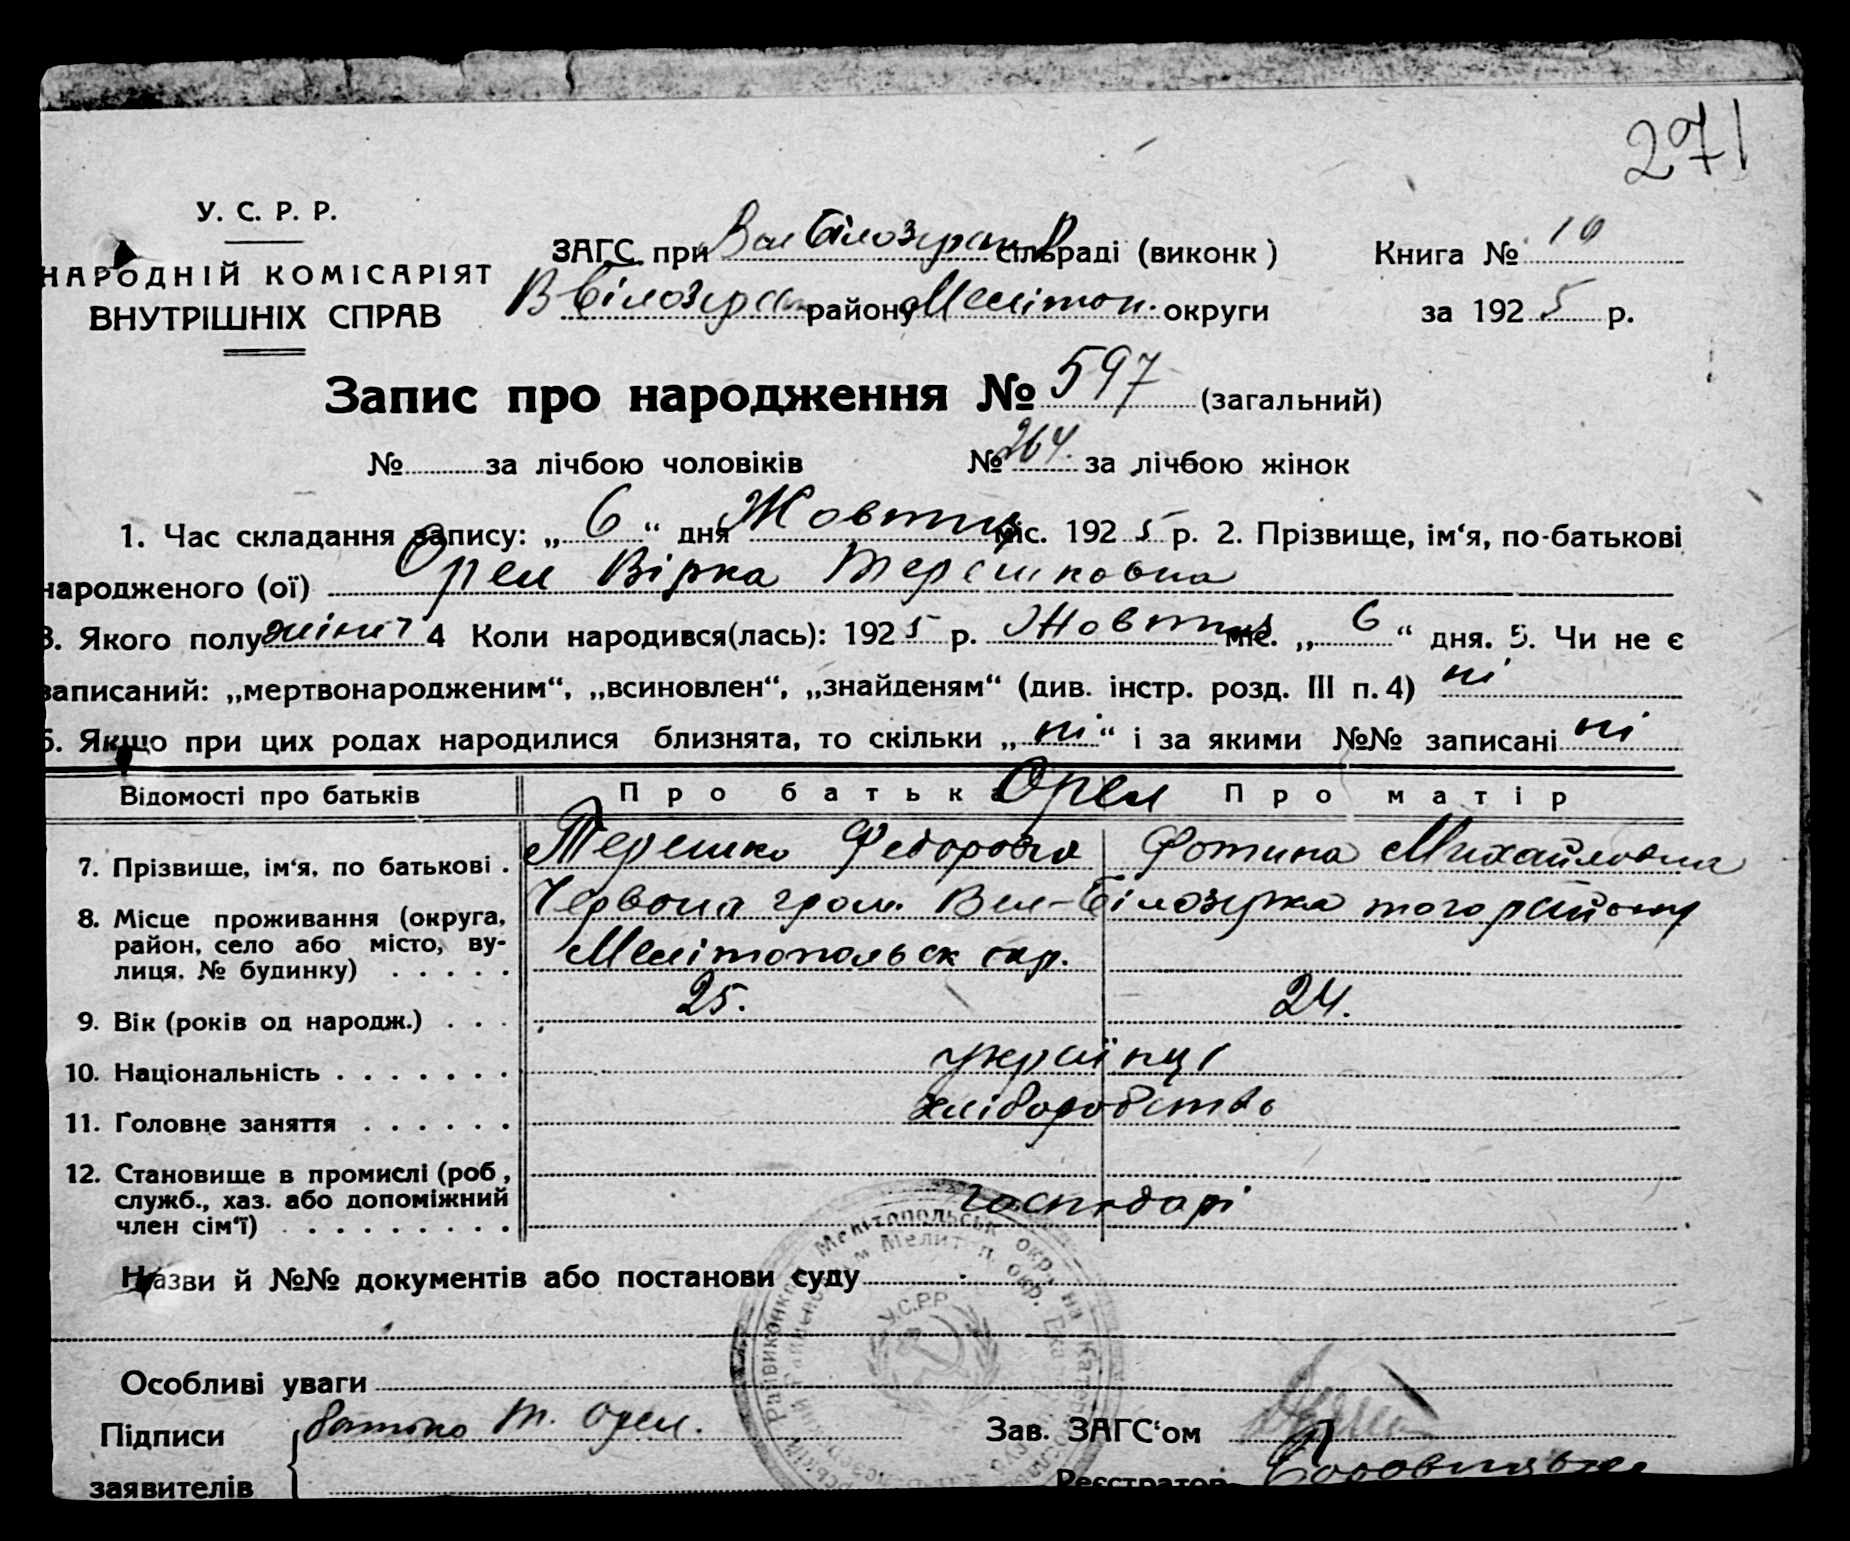 271
У. С. Р. Р.
НАРОДНІЙ КОМІСАРІЯТ
ВНУТРІШНІХ СПРАВ
ЗАГС при Вел Білозерск сільраді (виконк)
В Білозерск району Мелітоп. округи
Книга № 10
за 1925 р.
Запис про народження № 597 (загальний)
№ за лічбою чоловіків № 264. за лічбою жінок
1. Час складання запису: „6“ дня Жовтня міс. 1925 р. 2. Прізвище, ім‘я, по-батькові
народженого (ої) Орел Вірка Терешковна
3. Якого полу жіноч 4 Коли народився(лась): 1925 р. Жовтня міс. „6“ дня. 5. Чи не є
записаний: „мертвонародженим“, „всиновлен“, „знайденям“ (див. інстр. розд. III п. 4) ні
6. Якщо при цих родах народилися близнята, то скільки „ні“ і за якими №№ записані ні
Відомості про батьків Про батька Орел Про матір
7. Прізвище, ім‘я, по батькові . Терешко Федорович Фотина Михайловна
8. Місце проживання (округа, Червона гром. Вел-Білозерка того району
район, село або місто, ву- Мелітопольськ окр.
лиця, № будинку) . . . . .
9. Вік (років од народж.) . . . 25. 24.
10. Національність . . . . . . . українці
11. Головне заняття . . . . . . хліборобство
12. Становище в промислі (роб.,
служб., хаз. або допоміжний господарі
член сім‘ї) . . . . . . . . .
Назви й №№ документів або постанови суду
Особливі уваги
Підписи батько Т. Орел.
заявителів
Зав. ЗАГС‘ом
Реєстратор
У.С.Р.Р.